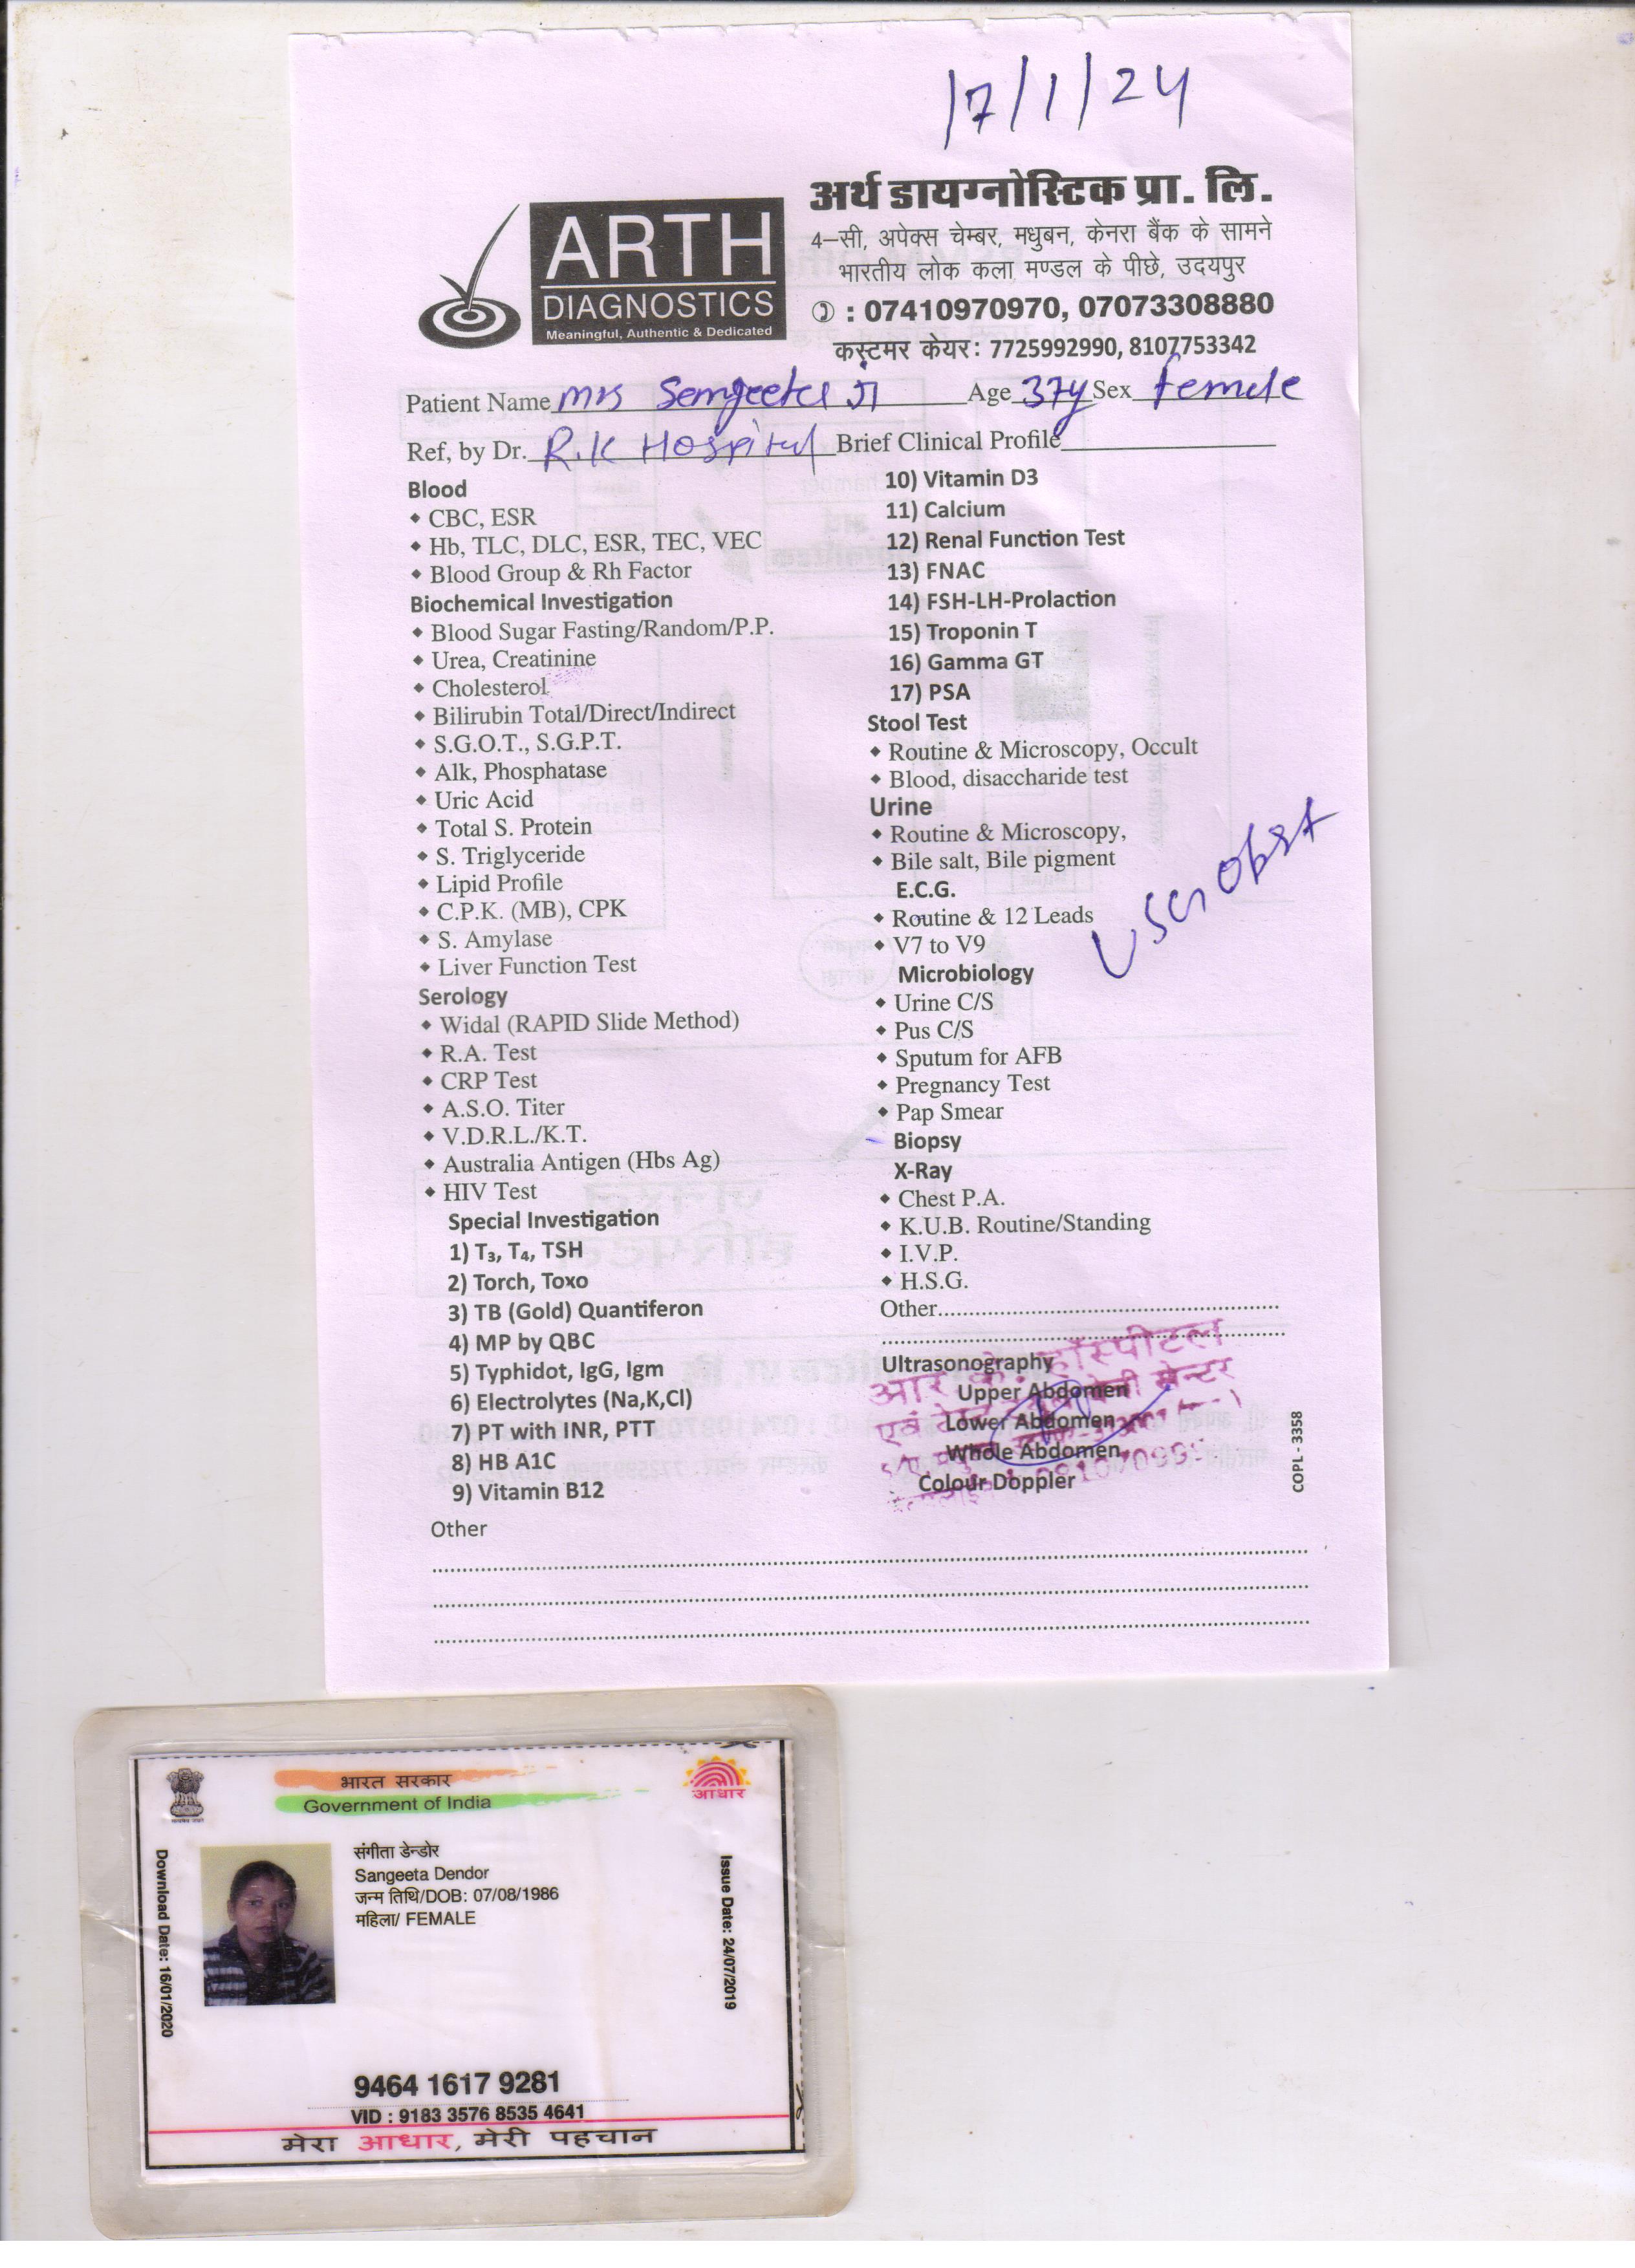 17/1/24
अर्थ डायग्नोस्टिक प्रा. लि.
ARTH
DIAGNOSTICS
Meaningful, Authentic & Dedicated
4-सी, अपेक्स चेम्बर, मधुबन, केनरा बैंक के सामने
भारतीय लोक कला मण्डल के पीछे, उदयपुर
: 07410970970, 07073308880
कस्टमर केयर: 7725992990, 8107753342
Patient Name Mrs Sangeeta जी Age 37y Sex female
Ref, by Dr. R.K Hospital Brief Clinical Profile
Blood
◆ CBC, ESR
◆ Hb, TLC, DLC, ESR, TEC, VEC
◆ Blood Group & Rh Factor
Biochemical Investigation
◆ Blood Sugar Fasting/Random/P.P.
◆ Urea, Creatinine
◆ Cholesterol
◆ Bilirubin Total/Direct/Indirect
◆ S.G.O.T., S.G.P.T.
◆ Alk, Phosphatase
◆ Uric Acid
◆ Total S. Protein
◆ S. Triglyceride
◆ Lipid Profile
◆ C.P.K. (MB), CPK
◆ S. Amylase
◆ Liver Function Test
Serology
◆ Widal (RAPID Slide Method)
◆ R.A. Test
◆ CRP Test
◆ A.S.O. Titer
◆ V.D.R.L./K.T.
◆ Australia Antigen (Hbs Ag)
◆ HIV Test
Special Investigation
1) T₃, T₄, TSH
2) Torch, Toxo
3) TB (Gold) Quantiferon
4) MP by QBC
5) Typhidot, IgG, Igm
6) Electrolytes (Na,K,Cl)
7) PT with INR, PTT
8) HB A1C
9) Vitamin B12
10) Vitamin D3
11) Calcium
12) Renal Function Test
13) FNAC
14) FSH-LH-Prolaction
15) Troponin T
16) Gamma GT
17) PSA
Stool Test
◆ Routine & Microscopy, Occult
◆ Blood, disaccharide test
Urine
◆ Routine & Microscopy,
◆ Bile salt, Bile pigment
E.C.G.
◆ Routine & 12 Leads
◆ V7 to V9
USG Obst
Microbiology
◆ Urine C/S
◆ Pus C/S
◆ Sputum for AFB
◆ Pregnancy Test
◆ Pap Smear
Biopsy
X-Ray
◆ Chest P.A.
◆ K.U.B. Routine/Standing
◆ I.V.P.
◆ H.S.G.
Other
Ultrasonography
Upper Abdomen
Lower Abdomen
Whole Abdomen
Colour Doppler
आर. के. हॉस्पीटल
एवं टेस्ट सेन्टर
COPL - 3358
Other
भारत सरकार
Government of India
आधार
संगीता डेन्डोर
Sangeeta Dendor
जन्म तिथि/DOB: 07/08/1986
महिला/ FEMALE
Download Date: 16/01/2020
Issue Date: 24/07/2019
9464 1617 9281
VID : 9183 3576 8535 4641
मेरा आधार, मेरी पहचान